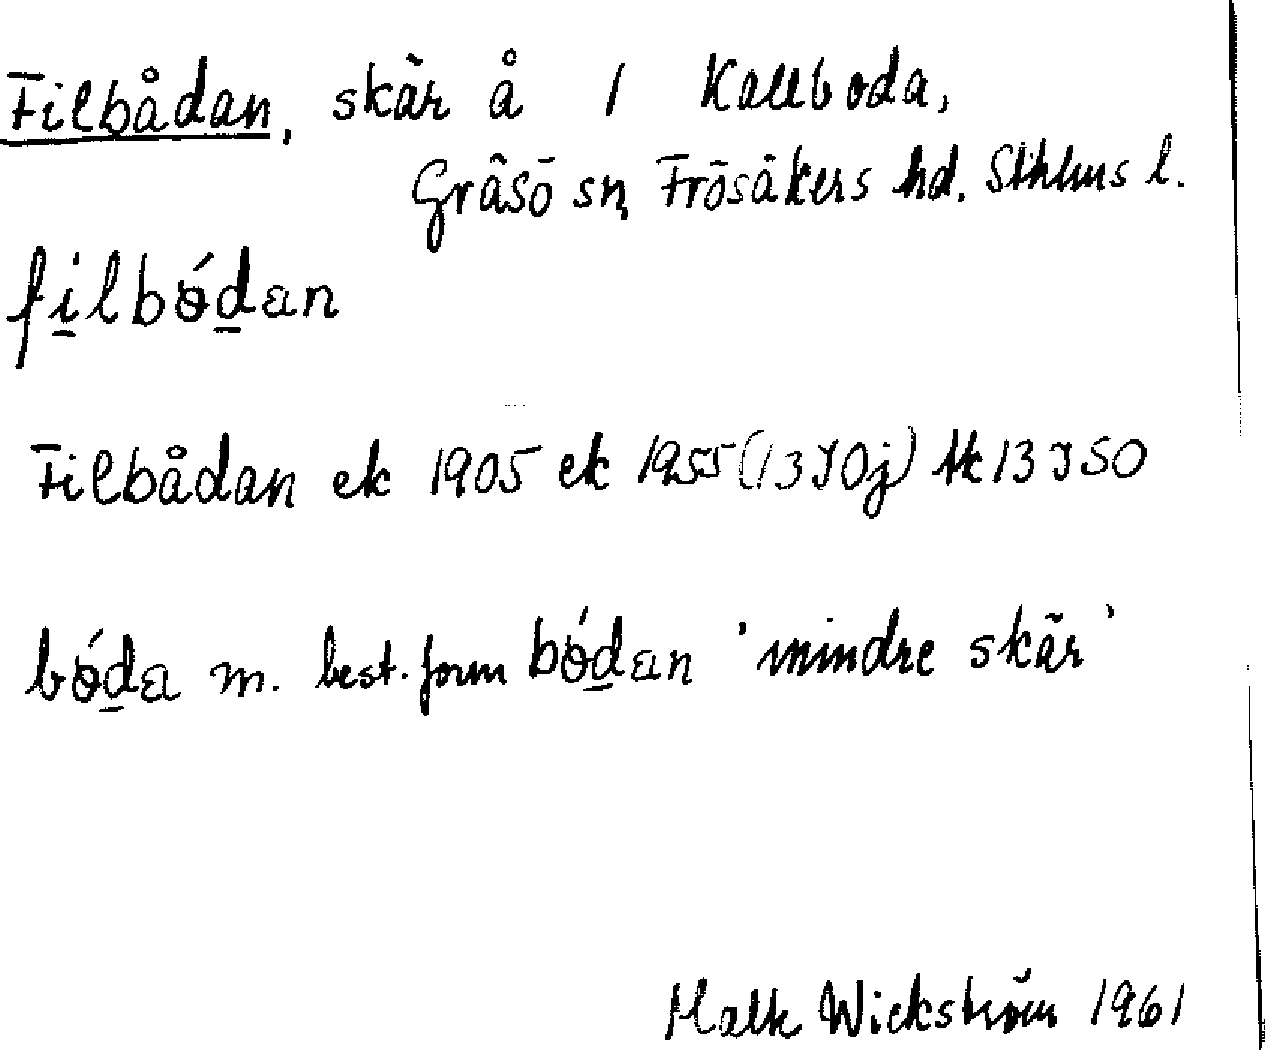 Filbådan, skär å 1 Kallboda,
Gräsö sn, Frösåkers hd. Sthlms l.
filbǿdan
Filbådan ek 1905 ek 1955 (13 J 0j) tk 13 J SO
bǿda m. best. form bǿdan 'mindre skär'
Wickström 1961